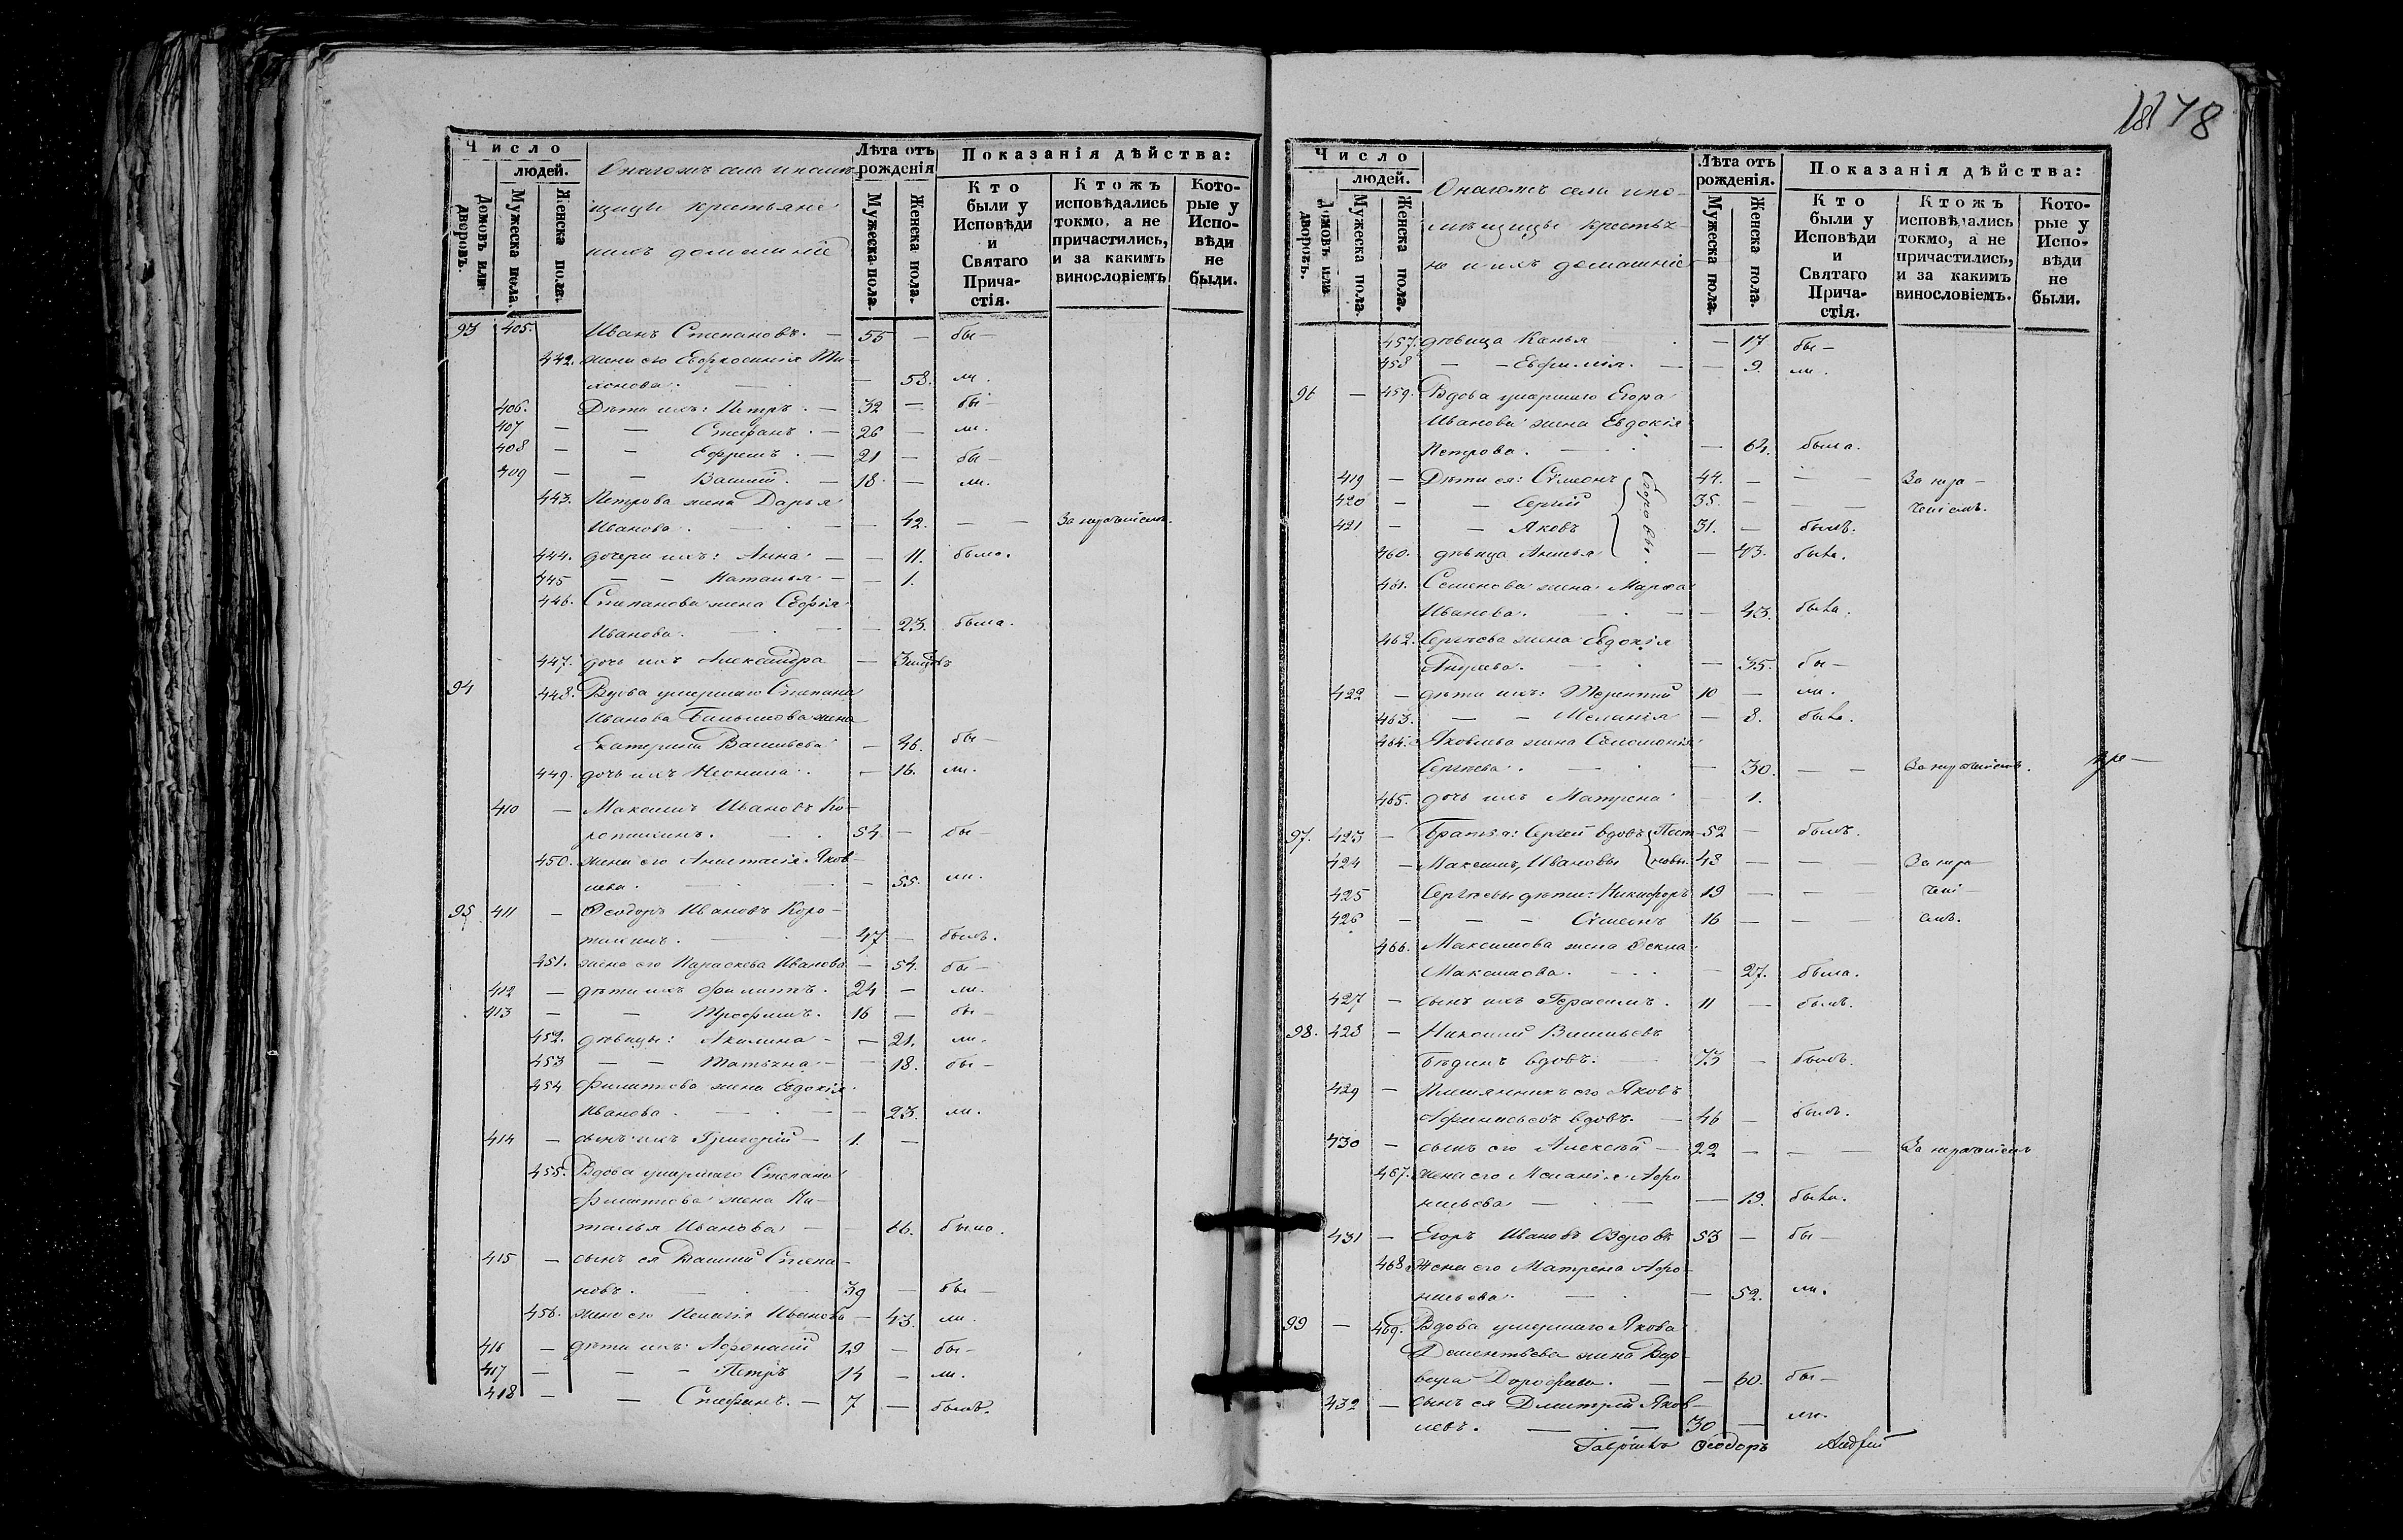 Число
людей.
Домовъ или дворовъ.
Мужеска пола.
Женска пола.
Онагожъ села и помѣ-
щицы крестьяне
и ихъ домашніе
Лѣта отъ рожденія
Мужеска пола.
Женска пола.
Показанія дѣйства:
Кто были у Исповѣди и Святаго Прича-стія.
Ктожъ исповѣдались токмо, а не причастились, и за какимъ винословіемъ
Кото-рые у Испо-вѣди не были.
93 405 Иванъ Степановъ. — 55 — бы—
442. жена его Евфросинія Ти-
хонова. — — 58. ли.
406. Дѣти ихъ: Петръ. — 32 — бы—
407 — — Стефанъ. — 26 — ли.
408 — — Ефремъ. — 21 — бы—
409 — — Василій. — 18. — ли.
443. Петрова жена Дарья
Иванова. — — 42. — — За нерачиτемъ.
444. дочери ихъ: Анна — — 11. была.
445 — — Наталья — — 1.
446. Степанова жена Софія
Иванова. — — 23. была.
447. дочь ихъ Александра — 3 мѣсяцовъ
94 448. Вдова умершаго Степана
Иванова жена
Екатерина Васильева — 46. бы—
449. дочь ихъ Неонила. — 16. ли.
410 — Максимъ Ивановъ Ко-
ротинъ. — 54. — бы—
450. жена его Анастасія Яков-
лева. — — 55. ли.
95 411 — Ѳеодоръ Ивановъ Коро-
тинъ. — 47 — былъ.
451. жена его Параскева Иванова — 54. бы—
412 — дѣти ихъ Филиппъ. 24 — ли.
413 — — Трофимъ. 16 — бы—
452. дѣвицы: Акилина — — 21. ли.
453 — — Татьяна — — 18. бы—
454 Филиппова жена Евдокія
Иванова. — — 23. ли.
414 — сынъ ихъ Григорій — 1. —
455. Вдова умершаго Степана
Филиппова жена На-
талья Иванова — — 66. была.
415 — сынъ ея Василій Степа-
новъ. — 39 — бы—
456. жена его Пелагія Иванова — 43. ли.
416 — дѣти ихъ: Афонасій 19 — бы—
417 — — — Петръ 14 — ли.
418 — — Стефанъ. — 7 — былъ.
178
Число
людей.
Домовъ или дворовъ.
Мужеска пола.
Женска пола.
Онагожъ села и по-
мѣщицы крестья-
не и ихъ домашніе
Лѣта отъ рожденія.
Мужеска пола.
Женска пола.
Показанія дѣйства:
Кто были у Исповѣди и Святаго Прича-стія.
Ктожъ исповѣдались токмо, а не причастились, и за какимъ винословіемъ.
Кото-рые у Испо-вѣди не были.
457. дѣвица — 17 бы—
458 — — Евфимія. — — 9. ли.
96 — 459. Вдова умершаго Егора
Иванова жена Евдокія
Петрова. — — 64. была.
419 — Дѣти ея: Сѵмеонъ Егоровы. 44. — — — За нера—
420 — — Сергій 35. — — — ченіемъ.
421 — — Яковъ 31. — былъ.
460. дѣвица Анисья — 43. была.
461. Семенова жена Марѳа
Иванова. — — 43. была.
462. Сергѣева жена Евдокія
Андреева. — — 35. бы—
422 — дѣти ихъ: Терентій 10 — ли.
463. — — Меланія — 8. была.
464. Яковлева жена Соломонія
Сергѣева. — — 30. — —
465. дочь ихъ Матрена — 1.
97. 423 — Братья: Сергей вдовъ 52 — былъ.
424 — Максимъ, Ивановы 48 — — — За нера—
425 Сергѣевы дѣти: Никифоръ 19 — — — чені—
426 — — — Сѵмеонъ 16 — — — емъ.
466. Максимова жена Ѳекла
Максимова. — — 27. была.
427 — сынъ ихъ Герасимъ. 11 — былъ.
98. 428 — Николай Васильевъ
Бѣдинъ вдовъ. — 73 — былъ.
429 — Племянникъ его Яковъ
Афанасьевъ вдовъ. — 46 — былъ.
430 — сынъ его Алексѣй — 22 — — —
467. жена его Меланія Афо-
насьева — — 19. была.
431 — Егоръ Ивановъ 53 — бы—
468. Жена его Матрена Афо-
насьева. — — 52. ли.
99 — 469. Вдова умершаго Якова
Дементьева жена Вар-
вара Дорофеева. — — 60. бы—
432 — сынъ ея Дмитрій Яков-
левъ. — 30 — ли.
Ѳеодоръ Андрей